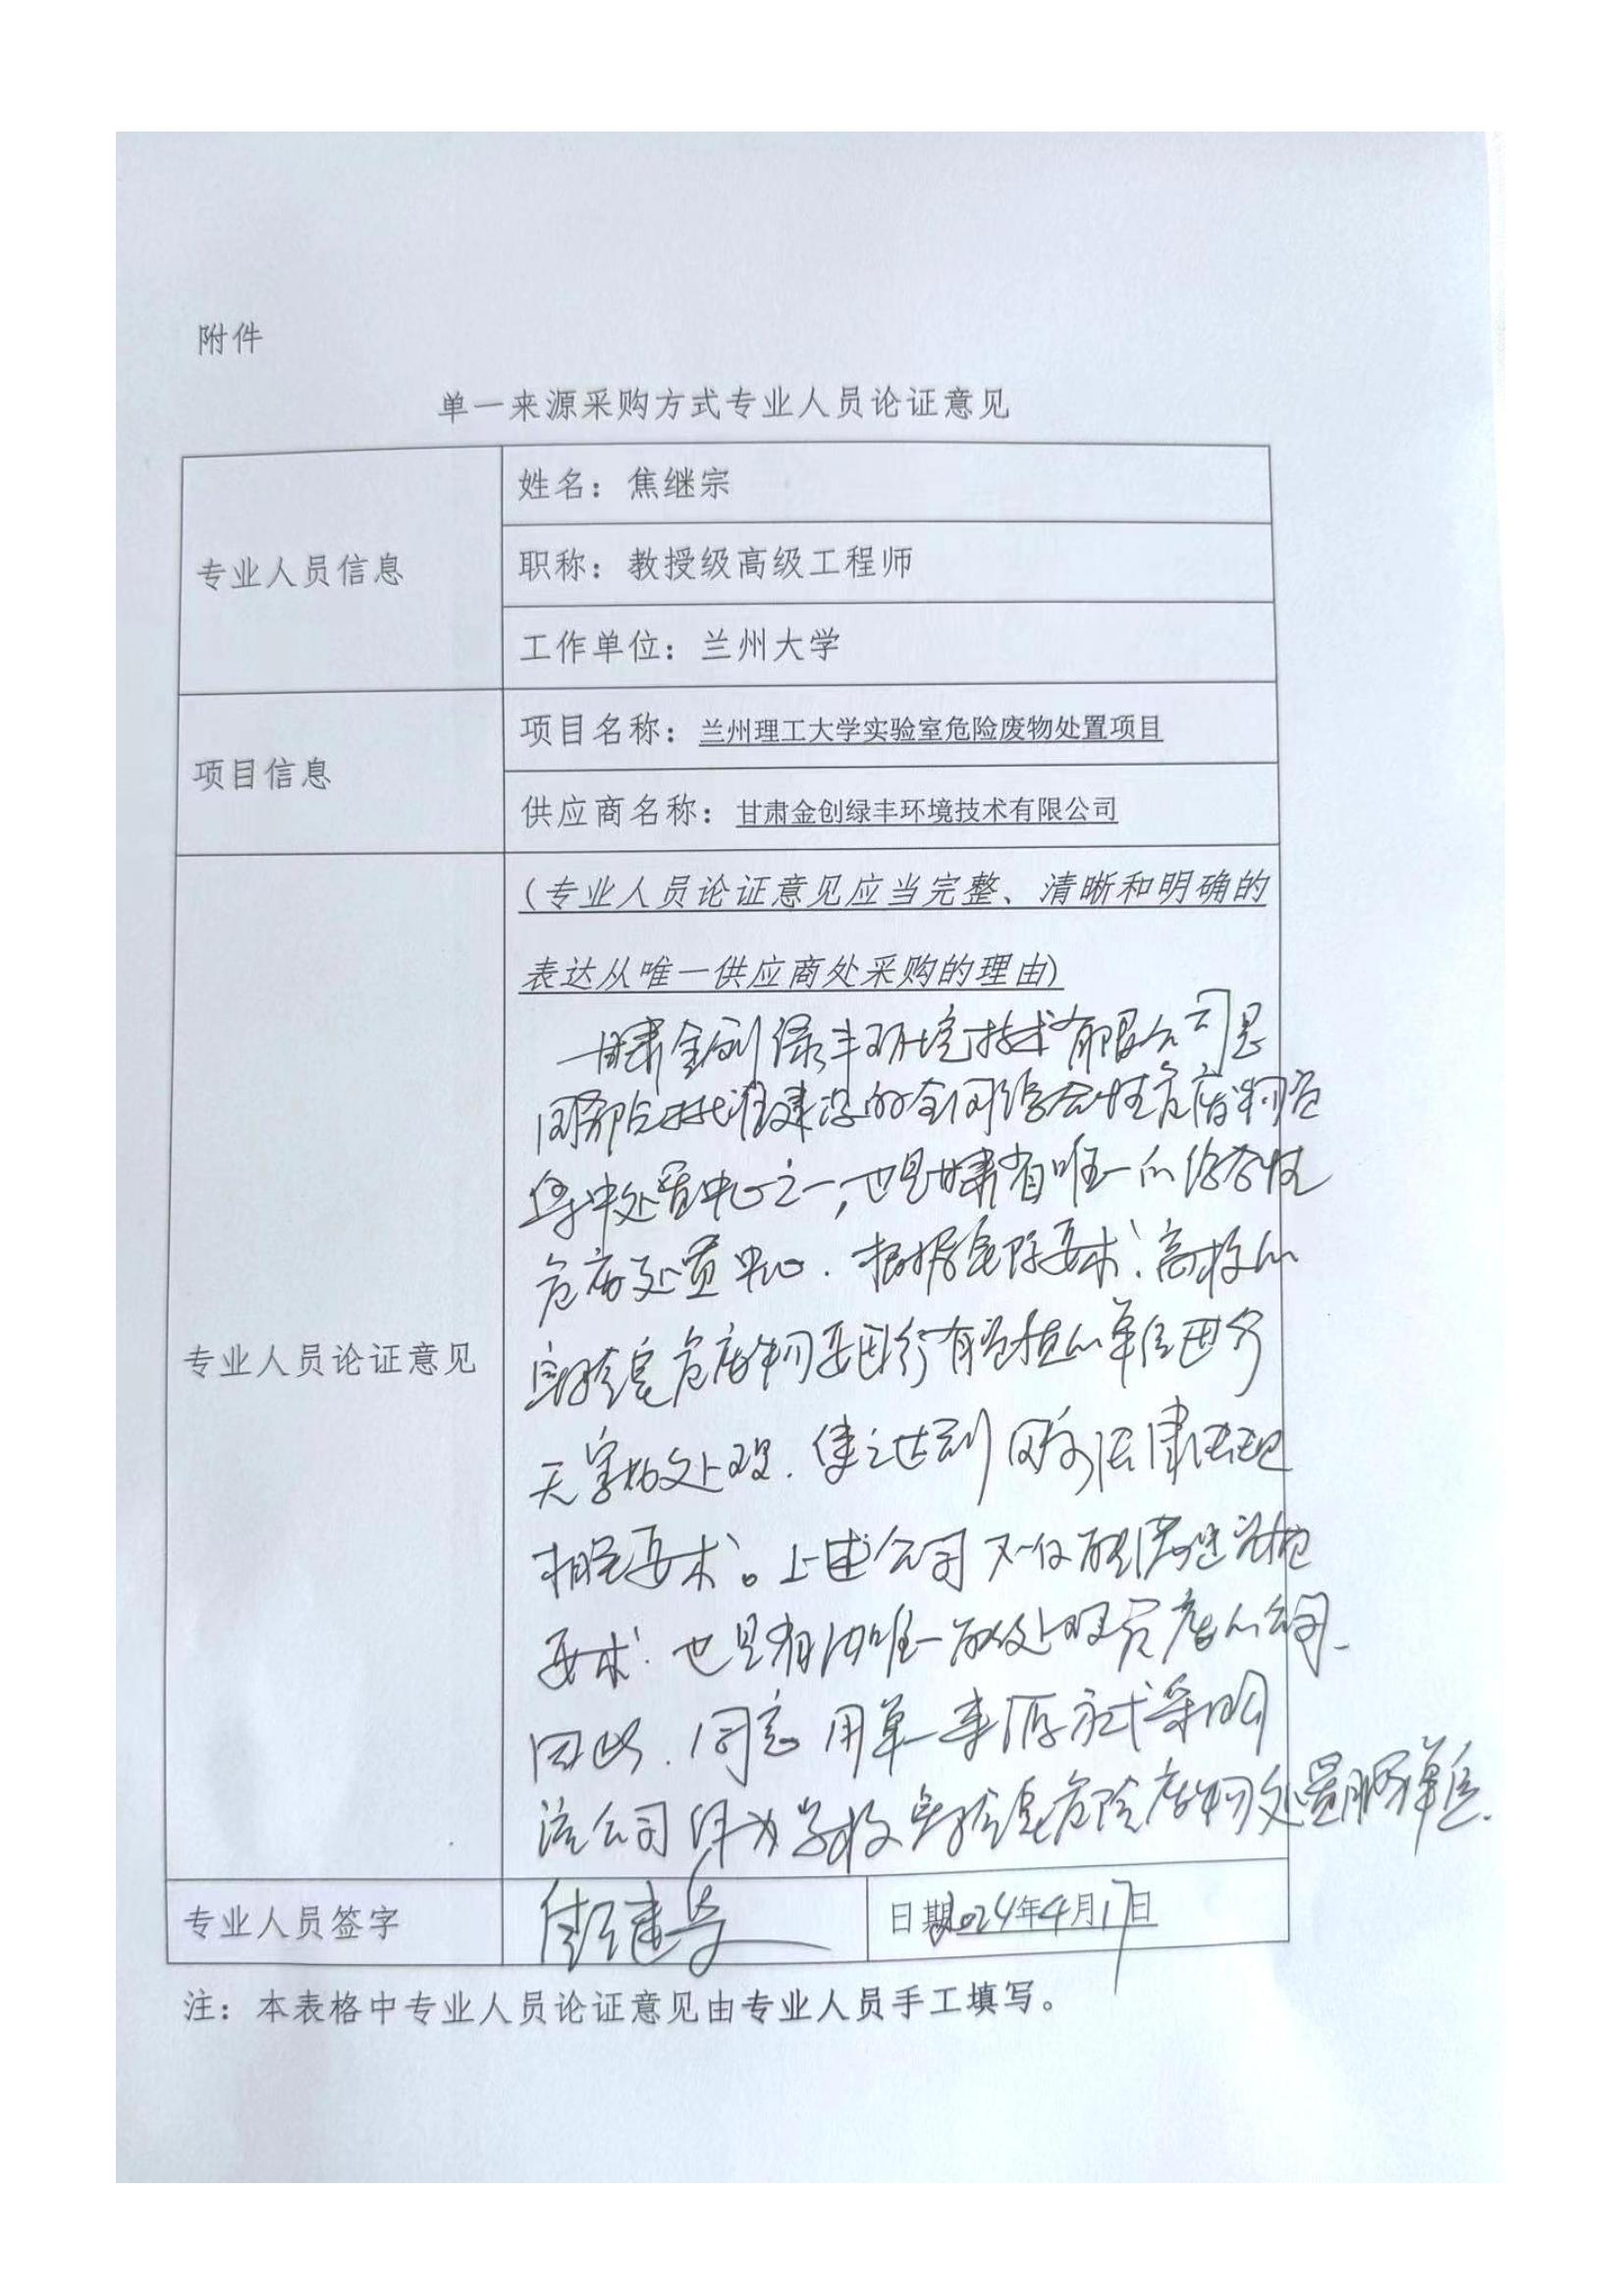 附件
单一来源采购方式专业人员论证意见
专业人员信息
姓名：焦继宗
职称：教授级高级工程师
工作单位：兰州大学
项目信息
项目名称：兰州理工大学实验室危险废物处置项目
供应商名称：甘肃金创绿丰环境技术有限公司
专业人员论证意见
(专业人员论证意见应当完整、清晰和明确的
表达从唯一供应商处采购的理由)
甘肃金创绿丰环境技术有限公司是
国务院批准建设的全国综合性危废物
集中处置中心之一，也是甘肃省唯一的综合性
危废处置中心．根据实际要求，高校的
实验室危废物要由有资质的单位进行
无害化处理．使之达到国家法律法规
相关要求。上述公司不仅能满足
要求，也是省内唯一处理危废的公司．
因此．同意用单一来源方式采购
该公司作为学校实验室危险废物处置服务单位．
专业人员签字
日期2024年4月17日
注：本表格中专业人员论证意见由专业人员手工填写。